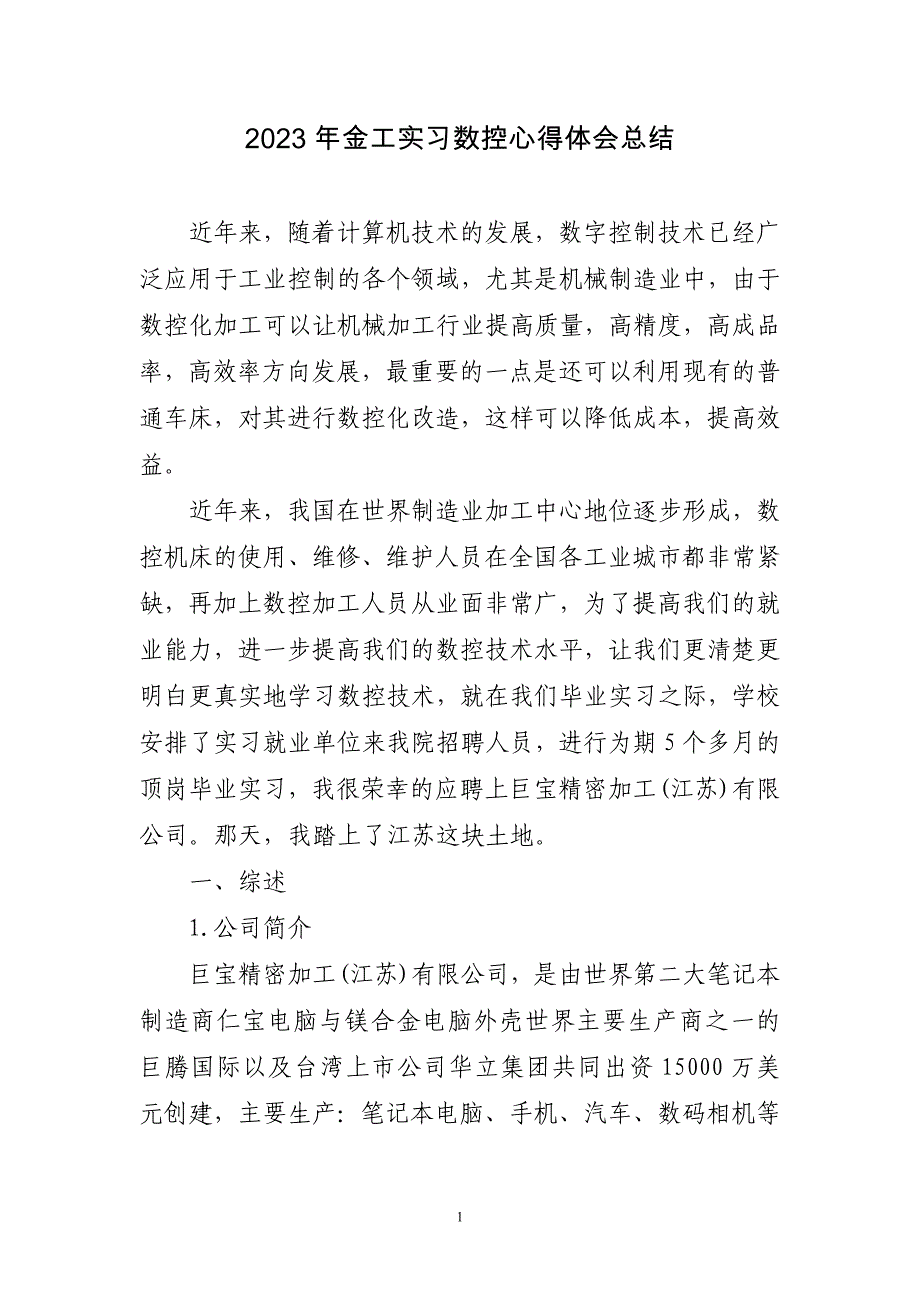 2023 年金工实习数控心得体会总结
近年来，随着计算机技术的发展，数字控制技术已经广
泛应用于工业控制的各个领域，尤其是机械制造业中，由于
数控化加工可以让机械加工行业提高质量，高精度，高成品
率，高效率方向发展，最重要的一点是还可以利用现有的普
通车床，对其进行数控化改造，这样可以降低成本，提高效
益。
近年来，我国在世界制造业加工中心地位逐步形成，数
控机床的使用、维修、维护人员在全国各工业城市都非常紧
缺，再加上数控加工人员从业面非常广，为了提高我们的就
业能力，进一步提高我们的数控技术水平，让我们更清楚更
明白更真实地学习数控技术，就在我们毕业实习之际，学校
安排了实习就业单位来我院招聘人员，进行为期 5 个多月的
顶岗毕业实习，我很荣幸的应聘上巨宝精密加工(江苏)有限
公司。那天，我踏上了江苏这块土地。
一、综述
1.公司简介
巨宝精密加工(江苏)有限公司，是由世界第二大笔记本
制造商仁宝电脑与镁合金电脑外壳世界主要生产商之一的
巨腾国际以及台湾上市公司华立集团共同出资 15000 万美
元创建，主要生产：笔记本电脑、手机、汽车、数码相机等
1